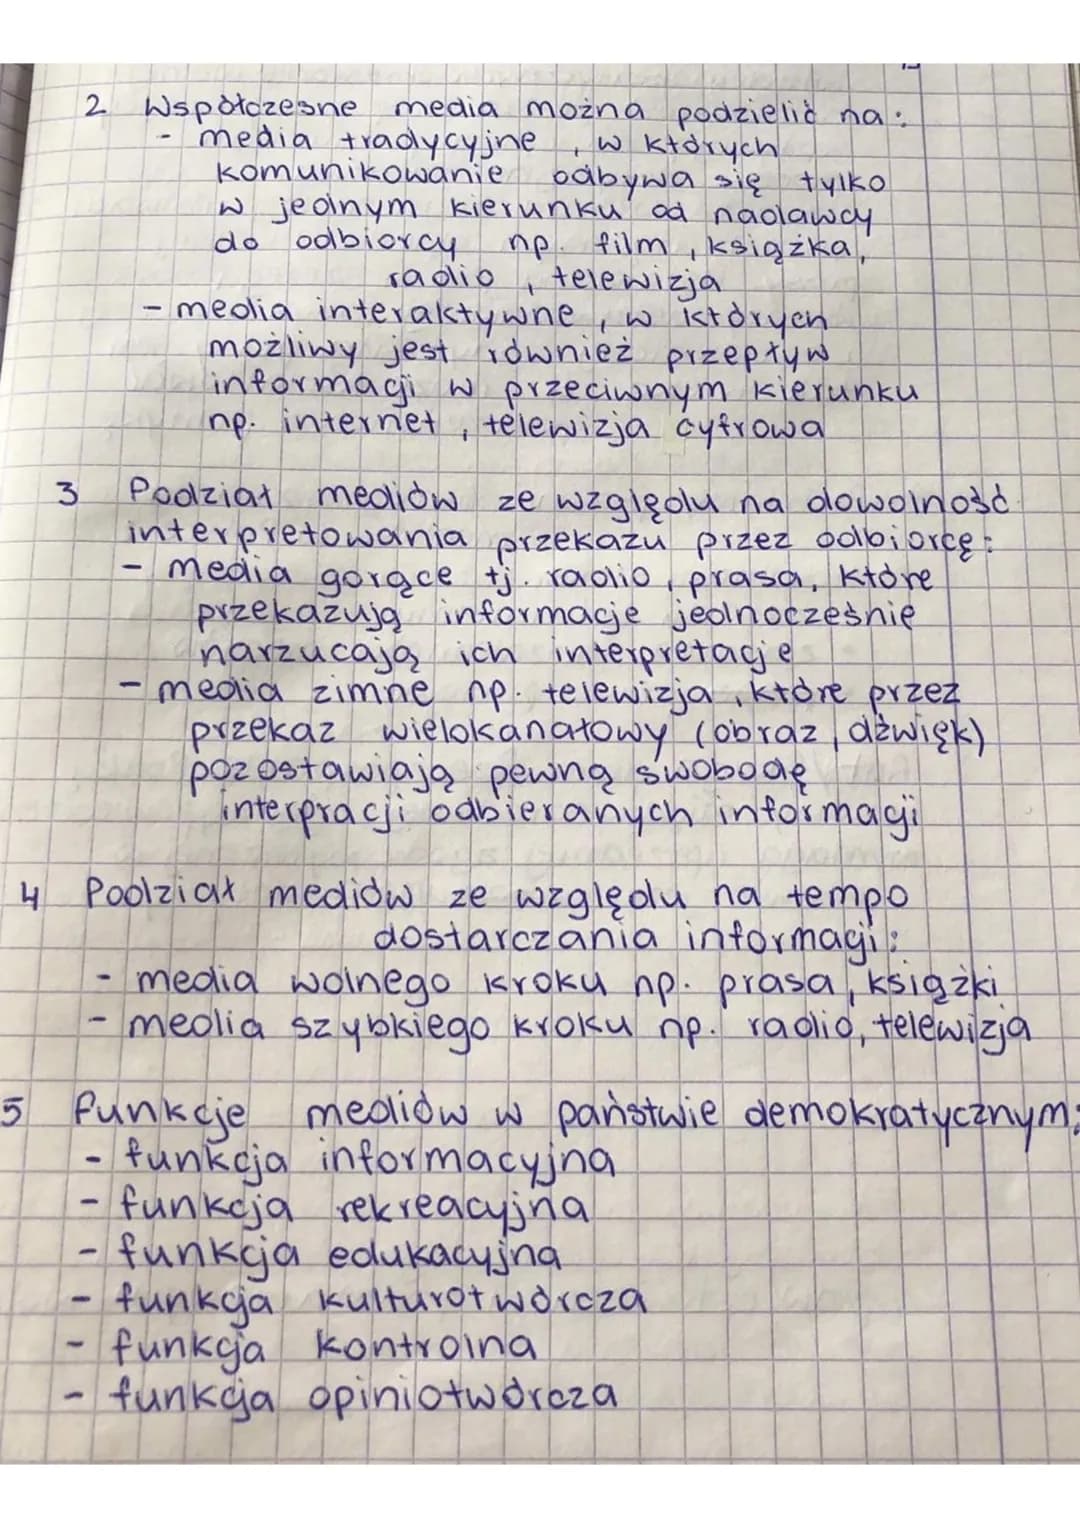 2 Współczesne media można podzielić na:
- media tradycyjne, w których
komunikowanie odbywa się tylko
w jednym kierunku od nadawcy
do odbiorcy np. film, książka,
radio, telewizja
- media interaktywne, w których
możliwy jest również przepływ
informacji w przeciwnym kierunku
np. internet, telewizja cyfrowa
3 Podział mediów ze względu na dowolność
interpretowania przekazu przez odbiorcę:
- media gorące tj. radio, prasa, które
przekazują informacje jednocześnie
narzucają ich interpretacje
- media zimne np. telewizja, które przez
przekaz wielokanałowy (obraz, dźwięk)
pozostawiają pewną swobodę
interpracji odbieranych informacji
4 Podział mediów ze względu na tempo
dostarczania informacji:
- media wolnego kroku np. prasa, książki
- media szybkiego kroku np. radio, telewizja
5 funkcje mediów w państwie demokratycznym:
- funkcja informacyjna
- funkcja rekreacyjna
- funkcja edukacyjna
- funkcja kulturotwórcza
- funkcja kontrolna
- funkcja opiniotwórcza